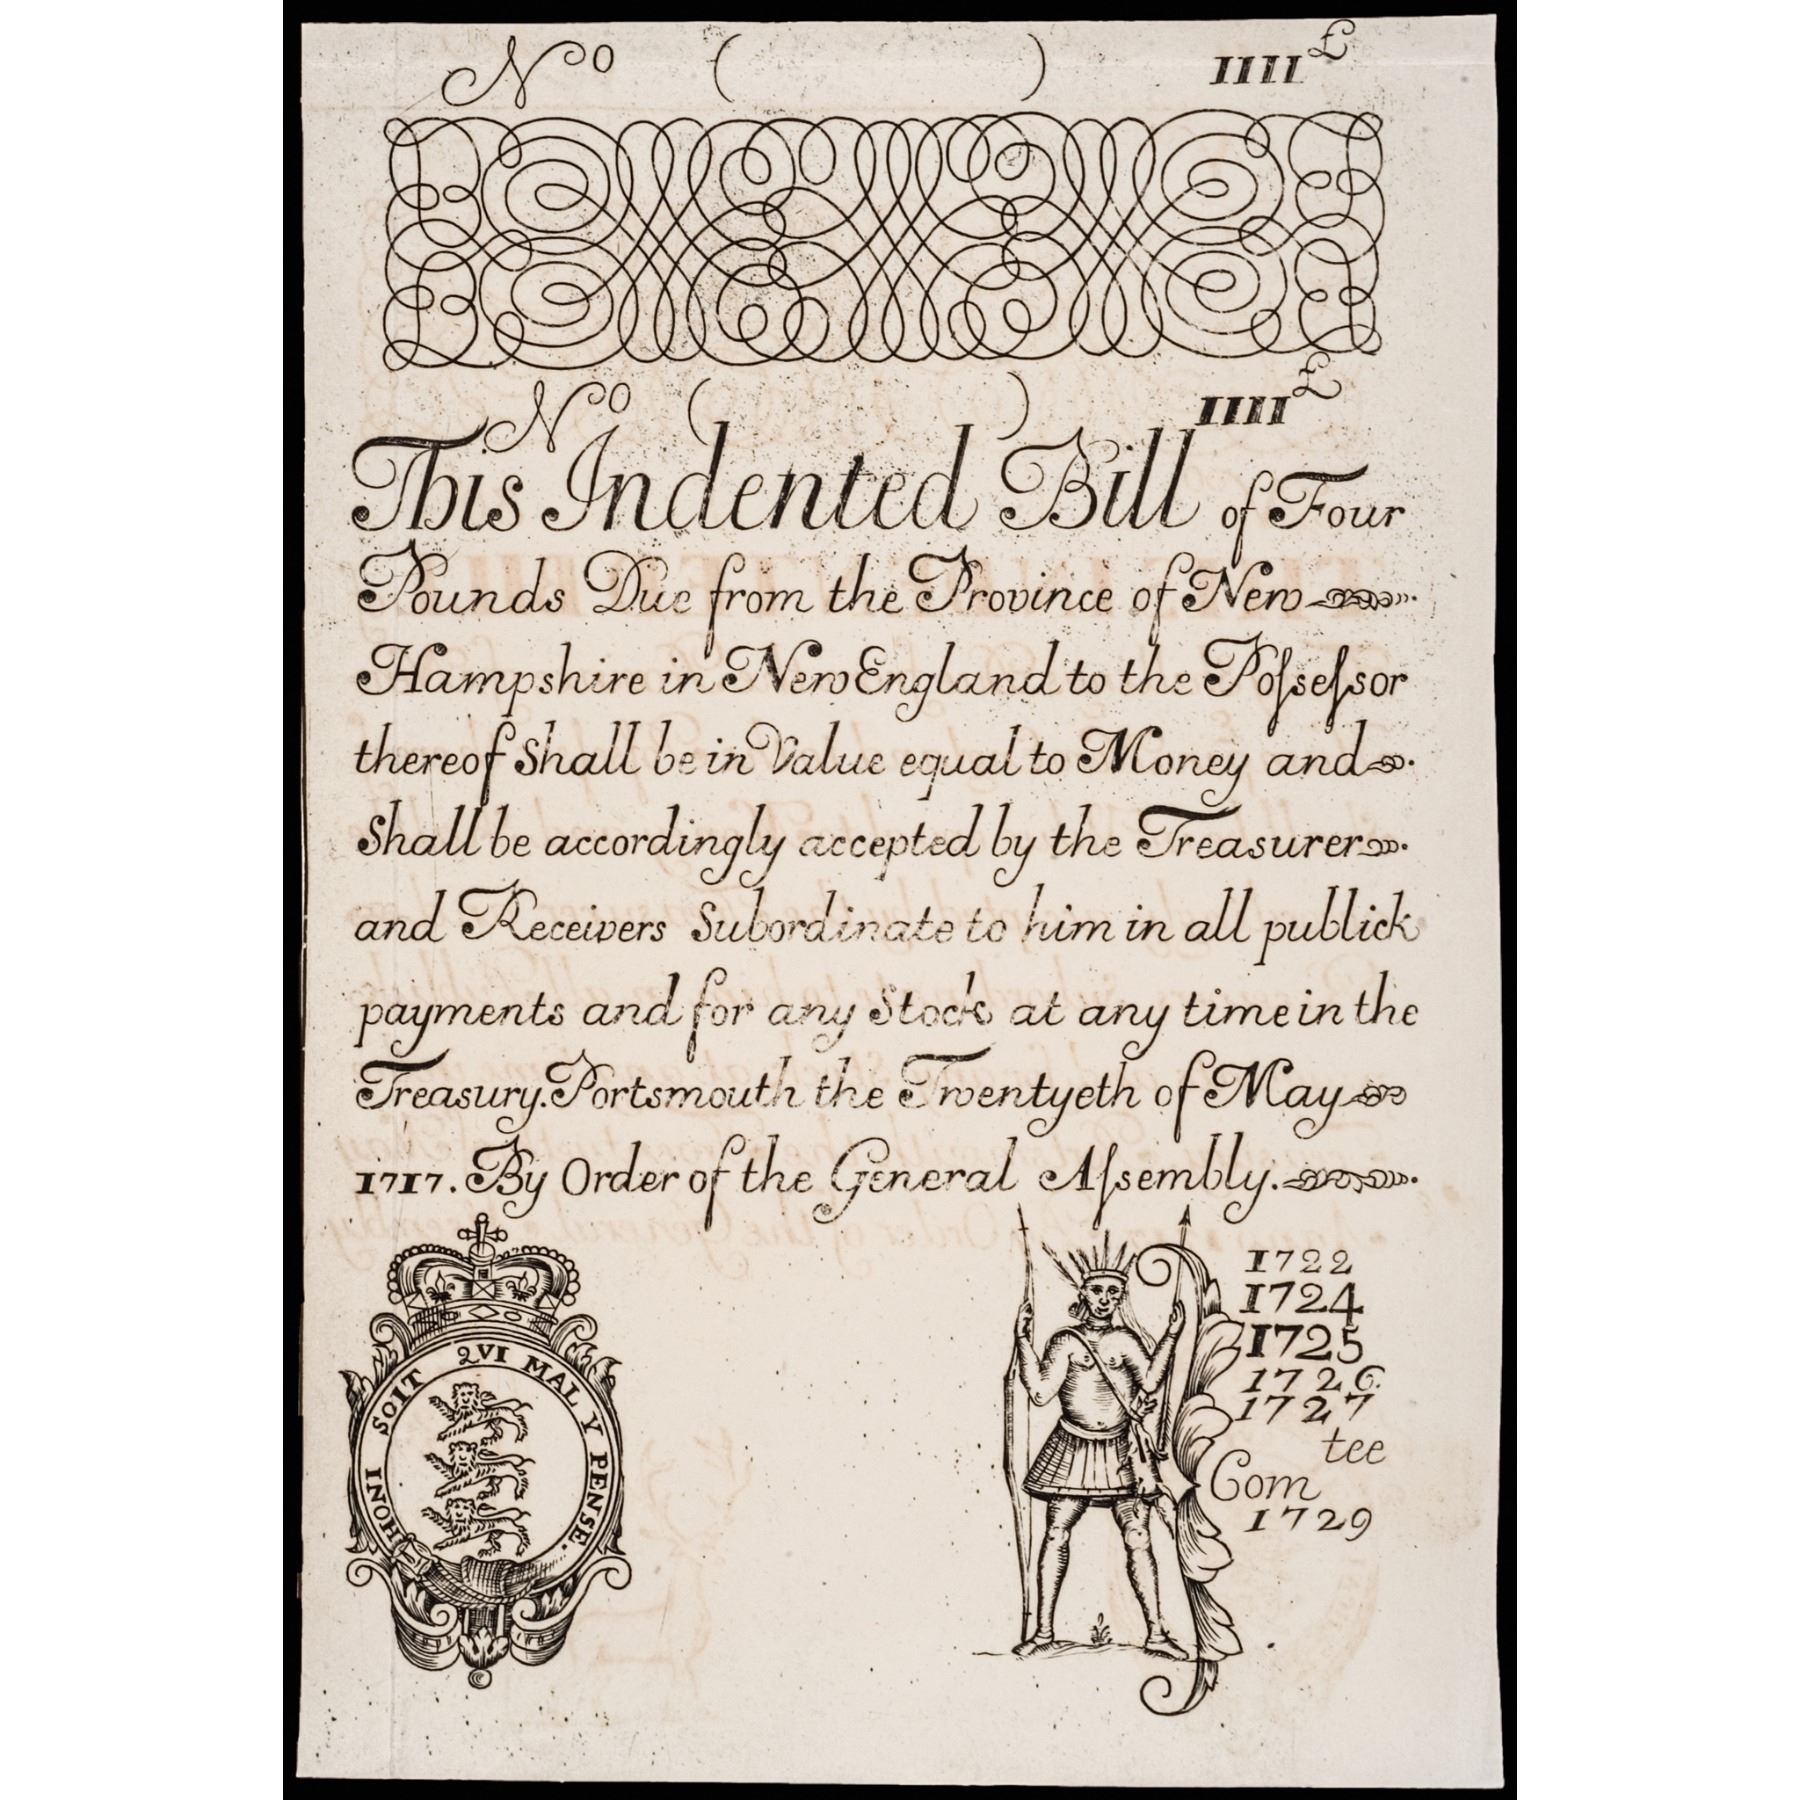 No ( ) IIII £
No ( ) IIII £
This Indented Bill of Four
Pounds Due from the Province of New
Hampshire in New England to the Poſseſsor
thereof Shall be in Value equal to Money and
Shall be accordingly accepted by the Treasurer
and Receivers Subordinate to him in all publick
payments and for any Stock at any time in the
Treasury. Portsmouth the Twentyeth of May
1717. By Order of the General Aſsembly.
HONI SOIT QVI MAL Y PENSE.
1722
1724
1725
1726.
1727
tee
Com
1729